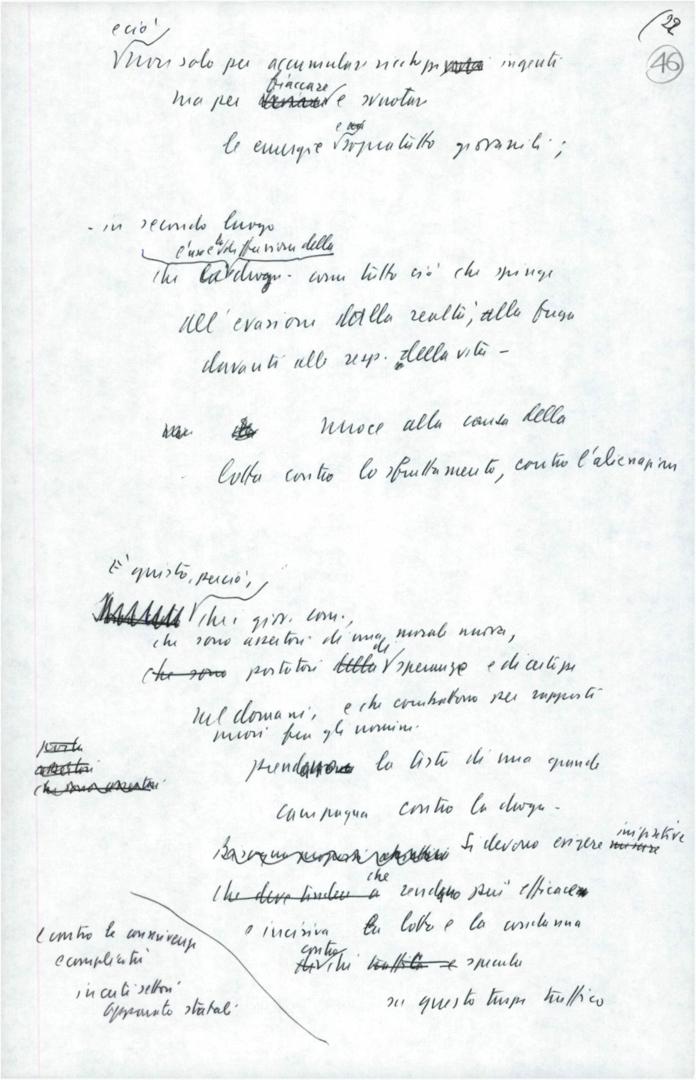 22
46
e ciò
non solo per accumulare ricchezze ingenti
fiaccare
ma per e svuotare
e
le energie sopratutto giovanili;
- in secondo luogo
l'uso e la diffusione della
che la droga - come tutto ciò che spinge
all'evasione dalla realtà, alla fuga
davanti alle resp. della vita -
nuoce alla causa della
lotta contro lo sfruttamento, contro l'alienazione
E' giusto, perciò,
che i giov. com.,
che sono assertori di una morale nuova,
di
che sono portatori della speranze e di certezze
sul domani, e che combattono per rapporti
nuovi fra gli uomini.
prendano la testa di una grande
campagna contro la droga -
iniziative
Si devono esigere misure
che
che deve tendere a rendano più efficace
e incisiva la lotta e la condanna
contro
chi traffica e specula
su questo turpe traffico
porta
assertori
che sono assertori
contro le connivenze
e complicità
in certi settori
apparato statale